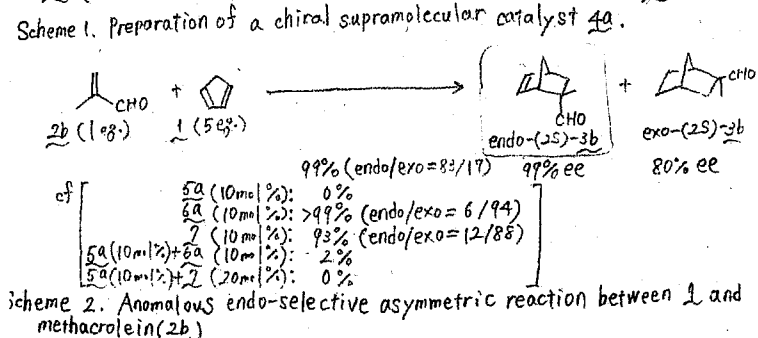 Scheme 1. Preparation of a chiral supramolecular catalyst 4a.
CHO + CHO + CHO
2b (1 eq.) 1 (5 eq.) endo-(2S)-3b exo-(2S)-3b
99% (endo/exo = 83/17) 99% ee 80% ee
cf [ 5a (10 mol%): 0%
6a (10 mol%): >99% (endo/exo = 6/94)
7 (10 mol%): 93% (endo/exo = 12/88)
5a (10 mol%) + 6a (10 mol%): 2%
5a (10 mol%) + 7 (20 mol%): 0% ]
Scheme 2. Anomalous endo-selective asymmetric reaction between 1 and
methacrolein (2b)